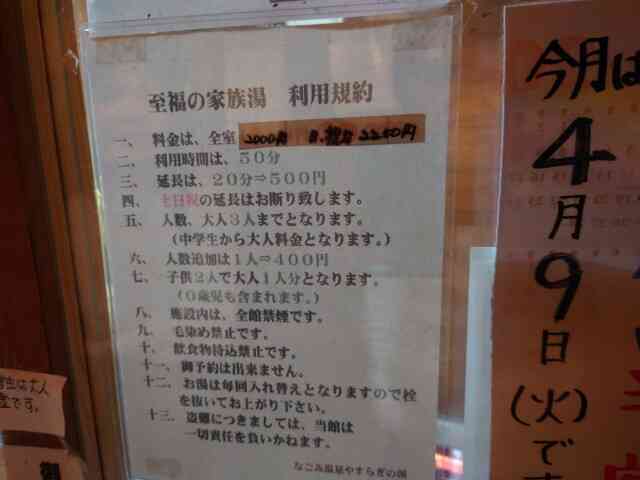 至福の家族湯 利用規約
一、 料金は、全室 2000円 2250円
二、 利用時間は、50分
三、 延長は、20分⇒500円
四、 土日祝の延長はお断り致します。
五、 人数、大人3人までとなります。
(中学生から大人料金となります。)
六、 人数追加は1人⇒400円
七、 子供2人で大人1人分となります。
(0歳児も含まれます。)
八、 施設内は、全館禁煙です。
九、 毛染め禁止です。
十、 飲食物持込禁止です。
十一、 御予約は出来ません。
十二、 お湯は毎回入れ替えとなりますので栓
を抜いてお上がり下さい。
十三、 盗難につきましては、当館は
一切責任を負いかねます。
なごみ温泉やすらぎの湯
今月は
4
月
9
日
(火)
で